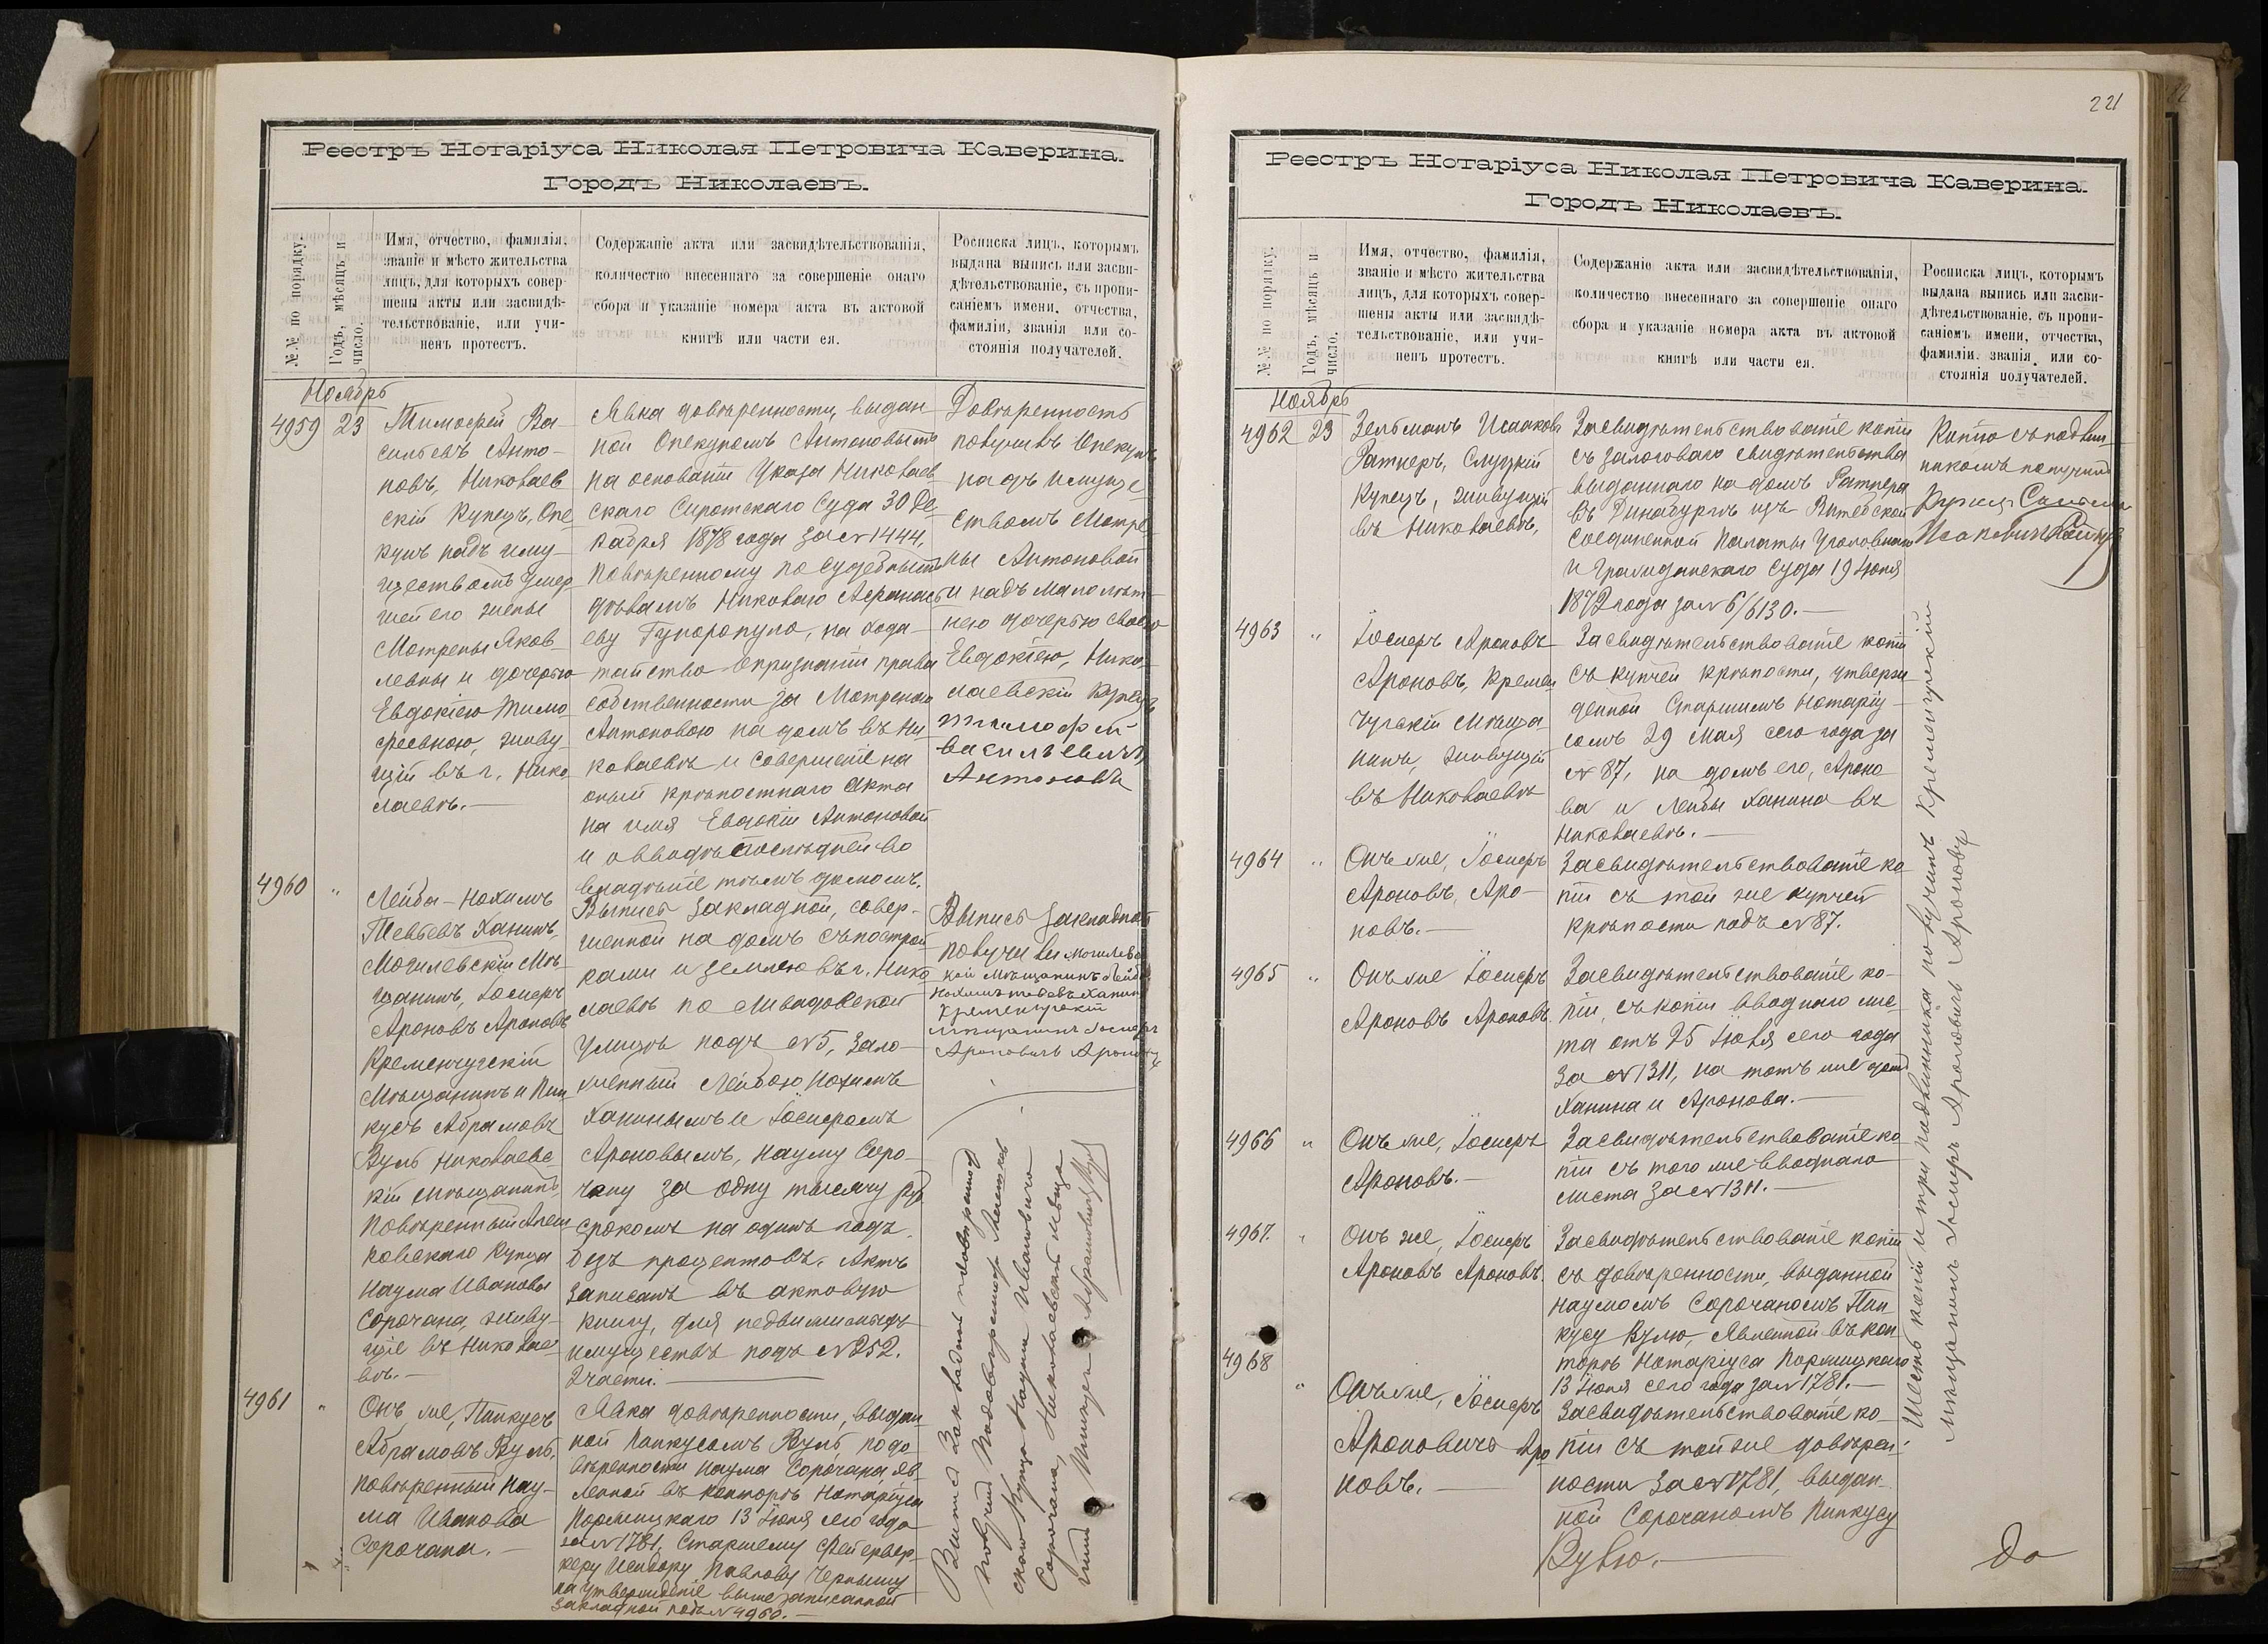 Реестръ Нотаріуса Николая Петровича Каверина.
Городъ Николаевъ.
№№ по порядку.
Годъ, мѣсяцъ и
число.
Имя, отчество, фамилія,
званіе и мѣсто жительства
лицъ, для которыхъ совер-
шены акты или засвидѣ-
тельствованіе, или учи-
ненъ протестъ.
Содержаніе акта или засвидѣтельствованія,
количество внесеннаго за совершеніе онаго
сбора и указаніе номера акта въ актовой
книгѣ или части ея.
Росписка лицъ, которымъ
выдана выпись или засви-
дѣтельствованіе, съ пропи-
саніемъ имени, отчества,
фамиліи, званія или со-
стоянія получателей.
Ноябрь
4959
23
Тимофей Ва-
сильевъ Анто-
новъ, Николаев
скій Купецъ, Опе
кунъ надъ иму-
ществомъ умер
шей его жены
Матрены Яков-
левны и дочерью
Евдокіею Тимо
феевною, живу-
щій въ г. Нико
лаевѣ.—
Явка довѣренности, выдан-
ной Опекуномъ Антоновымъ
на основаніи Указа Николаев
скаго Сиротскаго Суда 30 Де-
кабря 1878 года за № 1444,
повѣренному по судебнымъ
дѣламъ Николаю Афанась
еву на хода-
тайство о признаніи права
собственности за Матреною
Антоновою на домъ въ Ни-
колаевѣ и совершеніе на
оный крѣпостнаго Акта
на имя Евдокіи Антоновой
и о вводѣ послѣдней во
владѣніе тѣмъ домомъ.
Довѣренность
получилъ Опекунъ
надъ имуще-
ствомъ Матре-
ны Антоновой
и надъ малолѣт-
нею дочерью своею
Евдокіею, Нико-
лаевскій Купецъ
Тимофей
Васильевичъ
Антоновъ
4960
"
Лейба-Нохимъ
Тевьевъ Ханинъ,
Могилевскій Мѣ-
щанинъ, Іосиферъ
Ароновъ Ароновъ
Кременчугскій
Мѣщанинъ и Пин
кусъ Абрамовъ
Вуль Николаевс-
кій мѣщанинъ,
повѣренный
Купца
Наума Иванова
Сорочана, живу-
щіе въ Николае
вѣ.—
Выпись закладной, совер-
шенной на домъ съ построй
ками и землею въ г. Нико
лаевѣ по
улицѣ подъ № 5, зало-
женный Лейбою Нохимъ
Ханинымъ и Іосиферомъ
Ароновымъ, Науму Соро-
чану за одну тысячу руб
срокомъ на одинъ годъ,
безъ процентовъ. Актъ
записанъ въ актовую
книгу, для недвижимыхъ
имуществъ подъ № 252.
2 части.
Выпись закладной
получили Могилевс
кій мѣщанинъ Лейба
Нохимъ Тевевъ Ханинъ
Кременчугскій
мѣщанинъ Іосиферъ
Ароновичъ Ароновъ
4961
"
Онъ же, Пинкусъ
Абрамовъ Вуль,
повѣренный Нау-
ма Иванова
Сорочана.—
Явка довѣренности, выдан
ной Пинкусомъ Вуль по до
вѣренности Наума Сорочана яв
ленной въ конторѣ Нотаріуса
13 Іюня сего года
за № 1781, Старшему Фейервер-
керу Исидору Павлову Чернышу
на утвержденіе вышезаписанной
закладной подъ № 4960.—
Купца Наума Ивановича
Сорочана, Николаевскій мѣща-
нинъ Пинкусъ Абрамовичъ Вуль
221
Реестръ Нотаріуса Николая Петровича Каверина.
Городъ Николаевъ.
№№ по порядку.
Годъ, мѣсяцъ и
число.
Имя, отчество, фамилія,
званіе и мѣсто жительства
лицъ, для которыхъ совер-
шены акты или засвидѣ-
тельствованіе, или учи-
ненъ протестъ.
Содержаніе акта или засвидѣтельствованія,
количество внесеннаго за совершеніе онаго
сбора и указаніе номера акта въ актовой
книгѣ или части ея.
Росписка лицъ, которымъ
выдана выпись или засви-
дѣтельствованіе, съ пропи-
саніемъ имени, отчества,
фамиліи, званія, или со-
стоянія получателей.
Ноябрь
4962
23
Зельманъ Исааковъ
Ратнеръ, Слуцкій
Купецъ, живущій
въ Николаевѣ,
Засвидѣтельствованіе копіи
съ залоговаго свидѣтельства
выданнаго на домъ Ратнера
въ Динабургѣ изъ Витебской
Соединенной Палаты Уголовнаго
и Гражданскаго Суда 19 Іюня
1872 года за № 6/6130.—
Копію съ подлин-
никомъ получилъ
4963
"
Іосиферъ Ароновъ
Ароновъ, Кремен
чугскій мѣща
нинъ, живущій
въ Николаевѣ
Засвидѣтельствованіе копіи
съ купчей крѣпости, утверж
денной Старшимъ Нотаріу-
сомъ 29 Мая сего года за
№ 87, на домъ его, Ароно
ва и Лейбы Ханина въ
Николаевѣ.—
4964
"
Онъ же, Іосиферъ
Ароновъ, Аро-
новъ.—
Засвидѣтельствованіе ко
піи съ той же купчей
крѣпости подъ № 87.
4965
"
Онъ же Іосиферъ
Ароновъ Ароновъ.
Засвидѣтельствованіе ко-
піи, съ копіи вводнаго лис
та отъ 25 Іюля сего года
за № 1311, на тотъ же домъ
Ханина и Аронова.—
4966
"
Онъ же, Іосиферъ
Ароновъ.—
Засвидѣтельствованіе ко
піи съ того же вводнаго
листа за № 1311.—
4967.
"
Онъ же, Іосиферъ
Ароновъ Ароновъ.
Засвидѣтельствованіе копіи
съ довѣренности, выданной
Наумомъ Сорочаномъ Пин
кусу Вулю, явленной въ кон
торѣ Нотаріуса
13 Іюня сего года за № 1781.—
4968
"
Онъ же, Іосиферъ
Ароновичъ Аро
новъ.—
Засвидѣтельствованіе ко-
піи съ той же довѣрен-
ности за № 1781, выдан-
ной Сорочаномъ Пинкусу
Вулю.—
Шесть копій и три подлинника получилъ Кременчугскій
мѣщанинъ Іосиферъ Ароновичъ Ароновъ